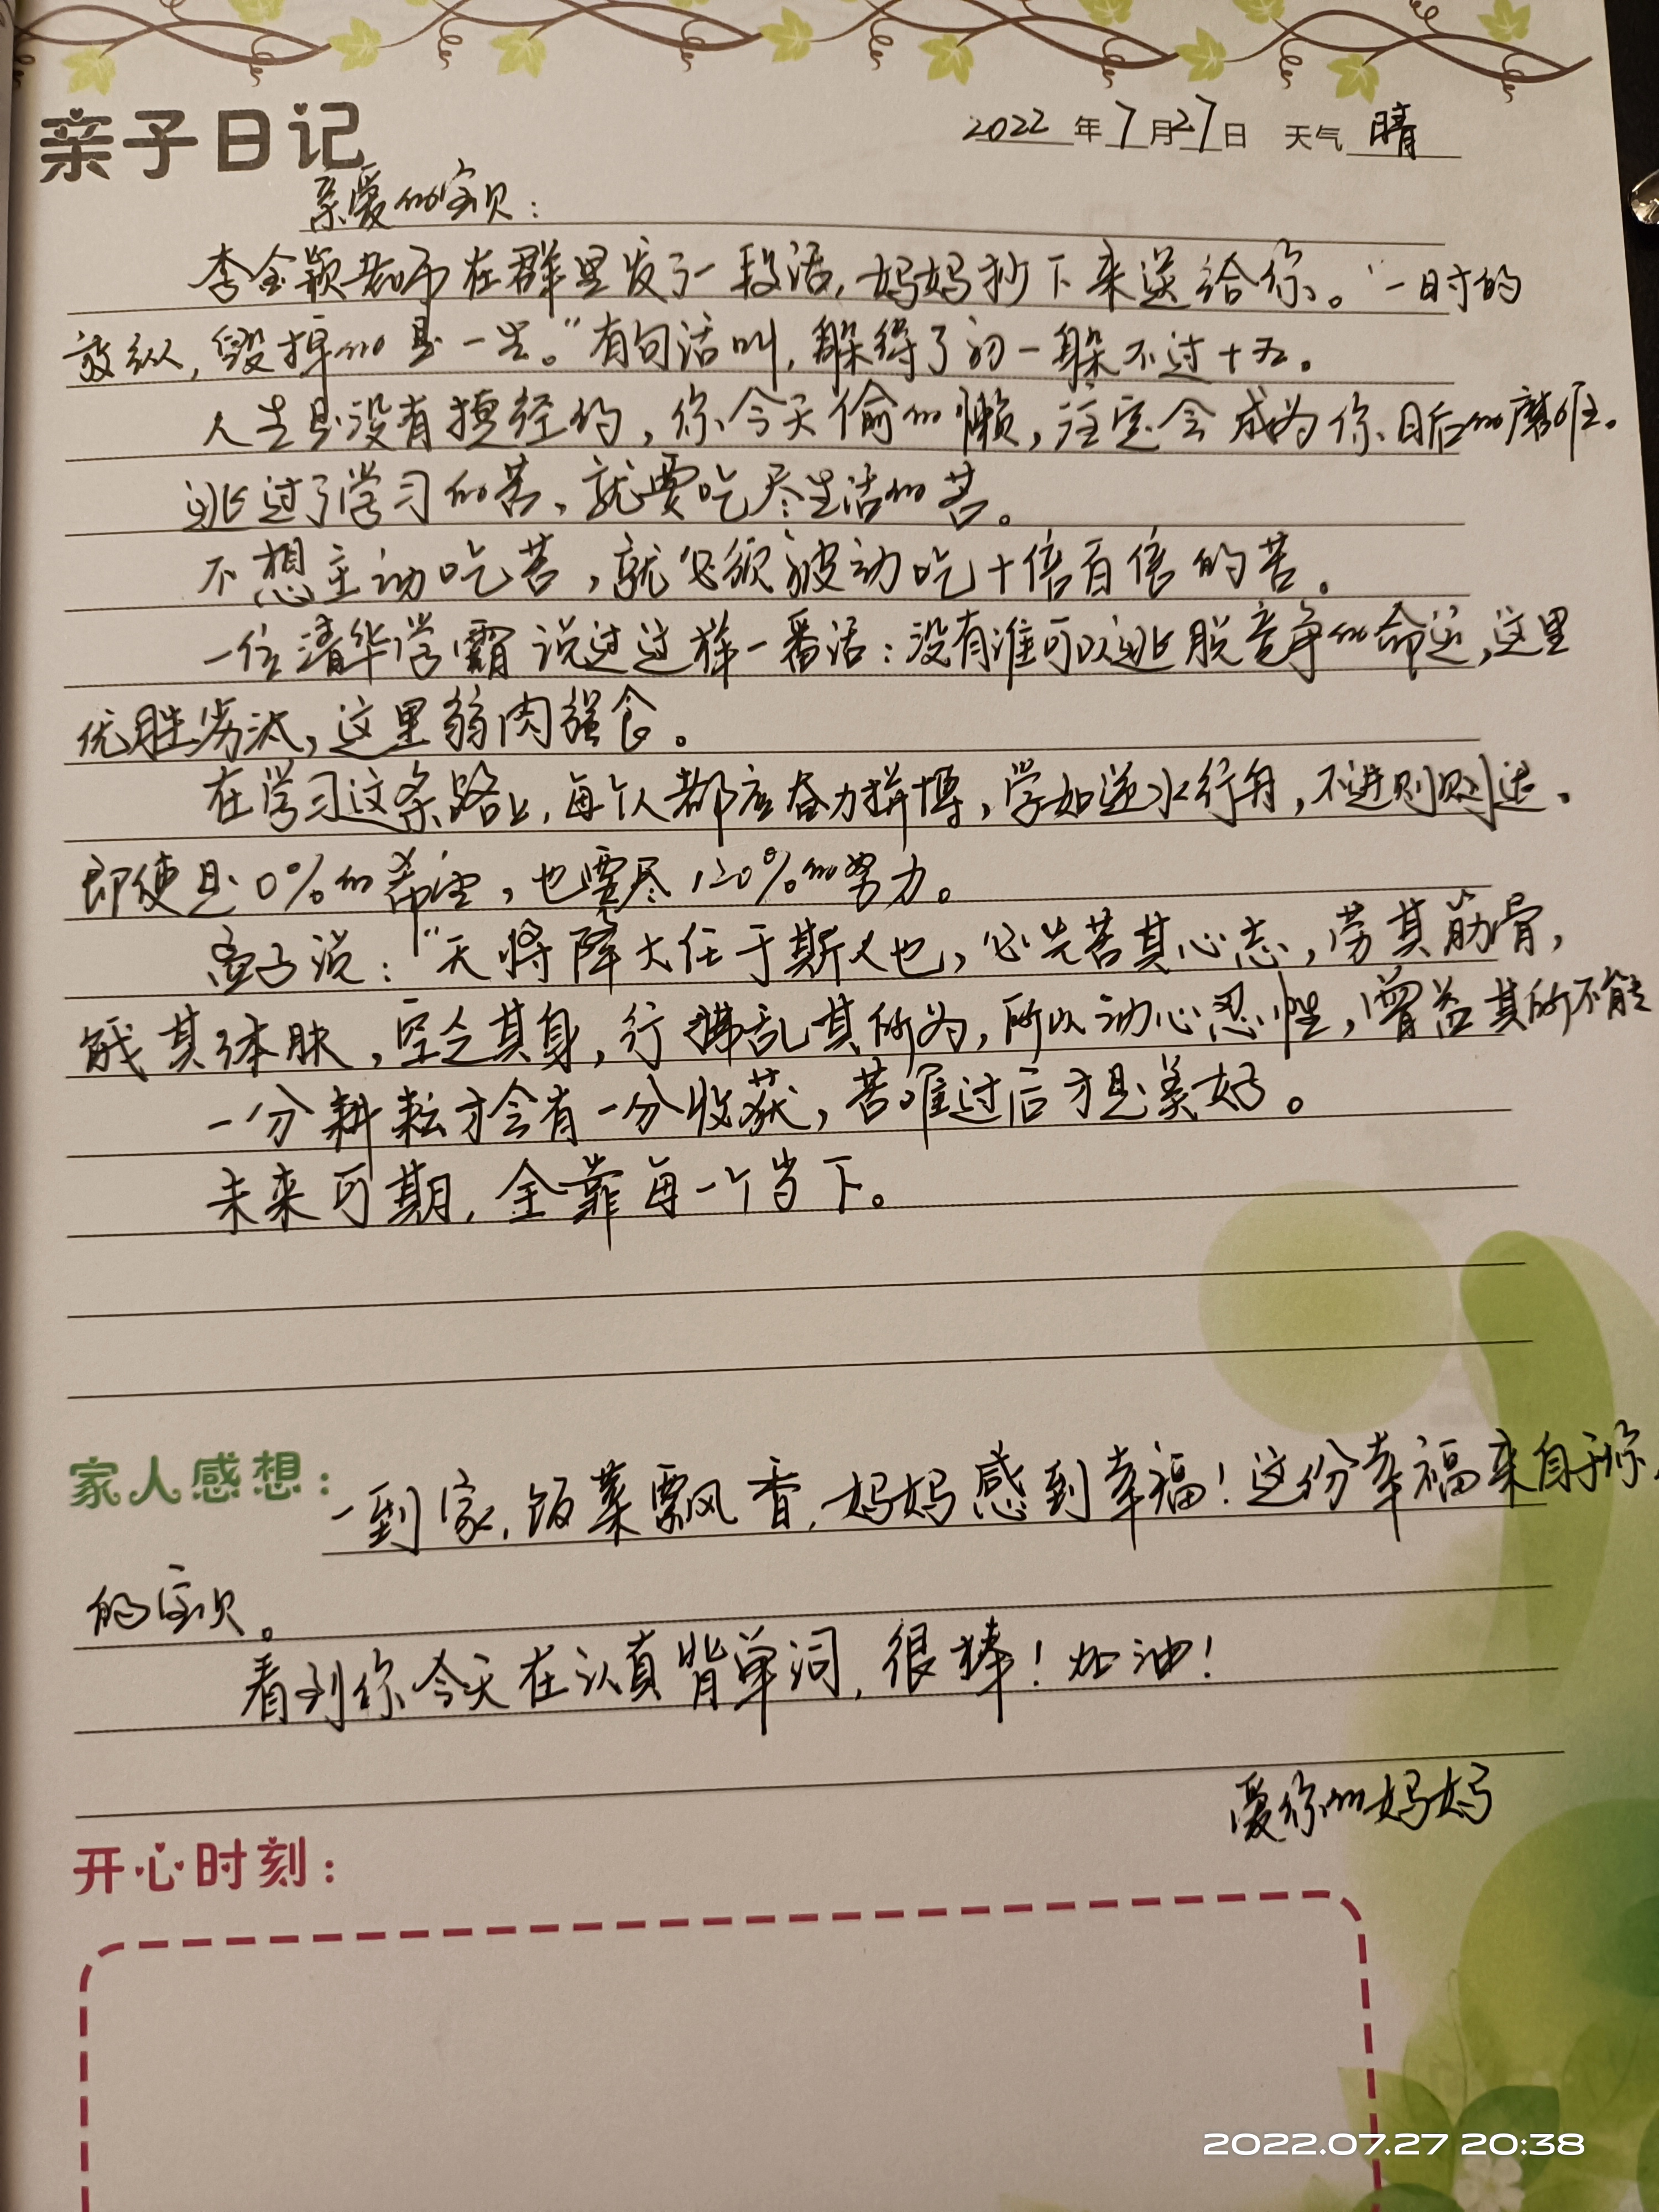 亲子日记
2022年7月27日 天气 晴
亲爱的宝贝：
李金颖老师在群里发了一段话，妈妈抄下来送给你。“一时的
放纵，毁掉的是一生。”有句话叫，躲得了初一躲不过十五。
人生是没有捷径的，你今天偷的懒，注定会成为你日后的磨难。
逃过了学习的苦、就要吃尽生活的苦。
不想主动吃苦，就必须被动吃十倍百倍的苦。
一位清华学霸说过这样一番话：没有谁可以逃脱竞争的命运，这里
优胜劣汰，这里弱肉强食。
在学习这条路上，每个人都应奋力拼博，学如逆水行舟，不进则退。
即使是0%的希望，也要尽120%的努力。
孟子说：“天将降大任于斯人也，必先苦其心志，劳其筋骨，
饿其体肤，空乏其身，行拂乱其所为，所以动心忍性，曾益其所不能
一分耕耘才会有一分收获，苦难过后才是美好。
未来可期，全靠每一个当下。
家人感想：
一到家，饭菜飘香，妈妈感到幸福！这份幸福来自于你，
的宝贝。
看到你今天在认真背单词，很棒！加油！
爱你的妈妈
开心时刻：
2022.07.27 20:38